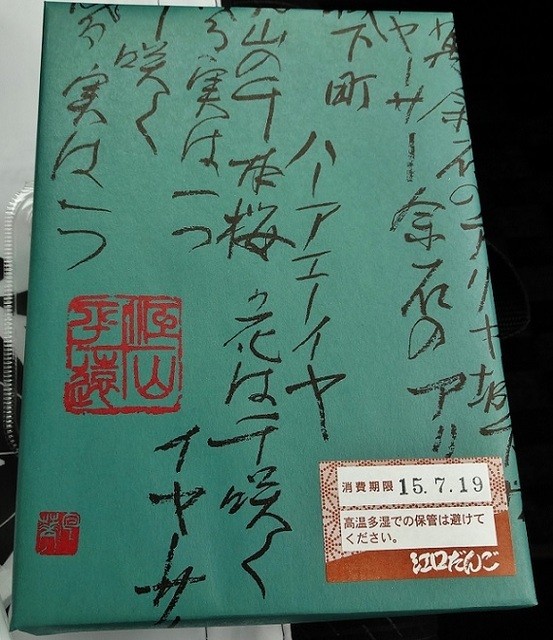 余石のアリヤ
ヤーサー余石のアリ
下町
ハーアエーイヤ
山の千本桜
花は千咲く
実は一つ
イヤーサ
咲く
実は一つ
消費期限 15.7.19
高温多湿での保管は避けて
ください。
江口だんご